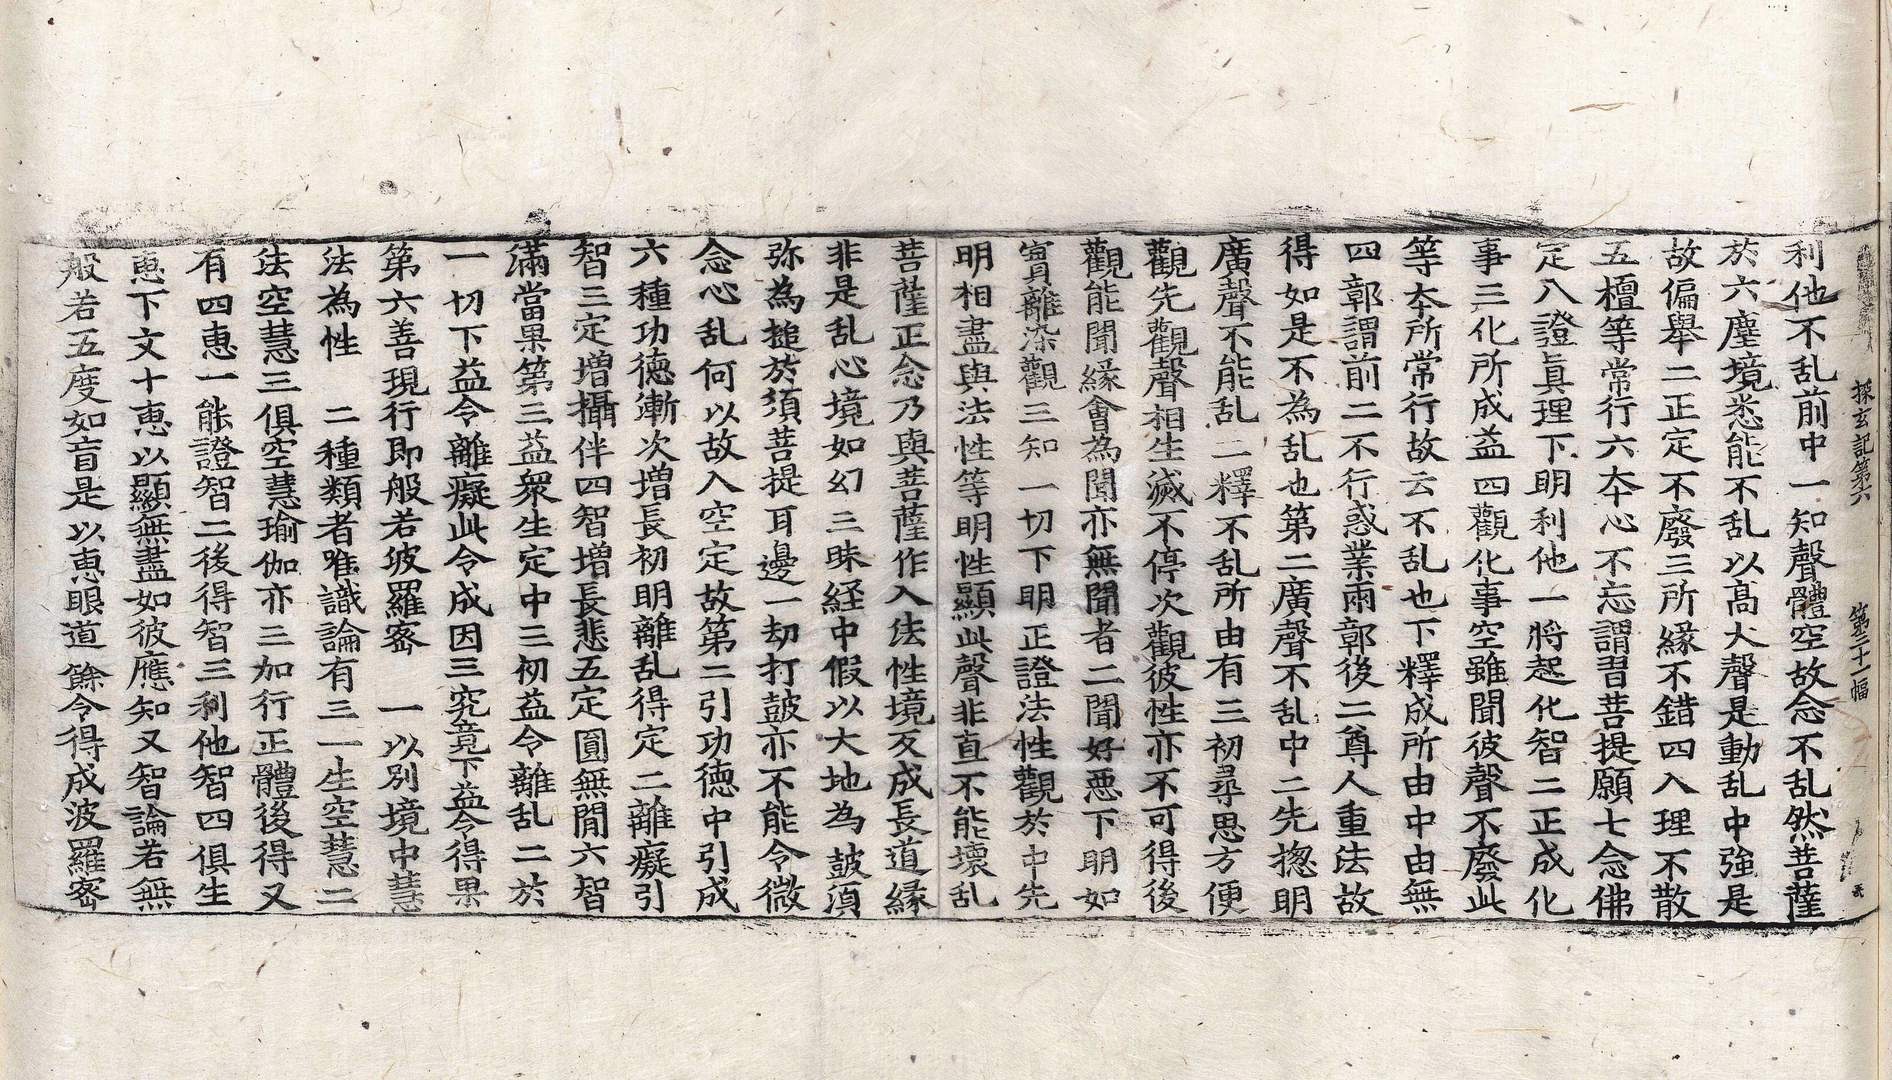 探玄記第六 第三十一幅
利他不乱前中一知聲體空故念不乱然菩薩
於六塵境悉能不乱以髙大聲是動乱中強是
故偏舉二正定不廢三所緣不錯四入理不散
五檀等常行六夲心不忘謂習菩提願七念佛
定八證眞理下明利他一將起化智二正成化
事三化所成益四觀化事空雖聞彼聲不廢此
等夲所常行故云不乱也下釋成所由中由無
四鄣謂前二不行惑業兩鄣後二尊人重法故
得如是不為乱也第二廣聲不乱中二先揔明
廣聲不能乱二釋不乱所由有三初尋思方便
觀先觀聲相生滅不停次觀彼性亦不可得後
觀能聞緣會為聞亦無聞者二聞好惡下明如
實離染觀三知一切下明正證法性觀於中先
明相盡與法性等明性顯此聲非直不能壞乱
菩薩正念乃與菩薩作入法性境又成長道緣
非是乱心境如幻三昧経中假以大地為皷湏
弥為搥於須菩提耳邊一劫打皷亦不能令微
念心乱何以故入空定故第二引功德中引成
六種功德漸次増長初明離乱得定二離癡引
智三定増攝伴四智増長悲五定圓無間六智
滿當果第三益衆生定中三初益令離乱二於
一切下益令離癡此令成因三究竟下益令得果
第六善現行即般若波羅宻 一以別境中慧
法為性 二種類者唯識論有三一生空慧二
法空慧三俱空慧瑜伽亦三加行正體後得又
有四恵一能證智二後得智三利他智四俱生
恵下文十恵以顯無盡如彼應知又智論若無
般若五度如盲是以恵眼道餘令得成波羅宻